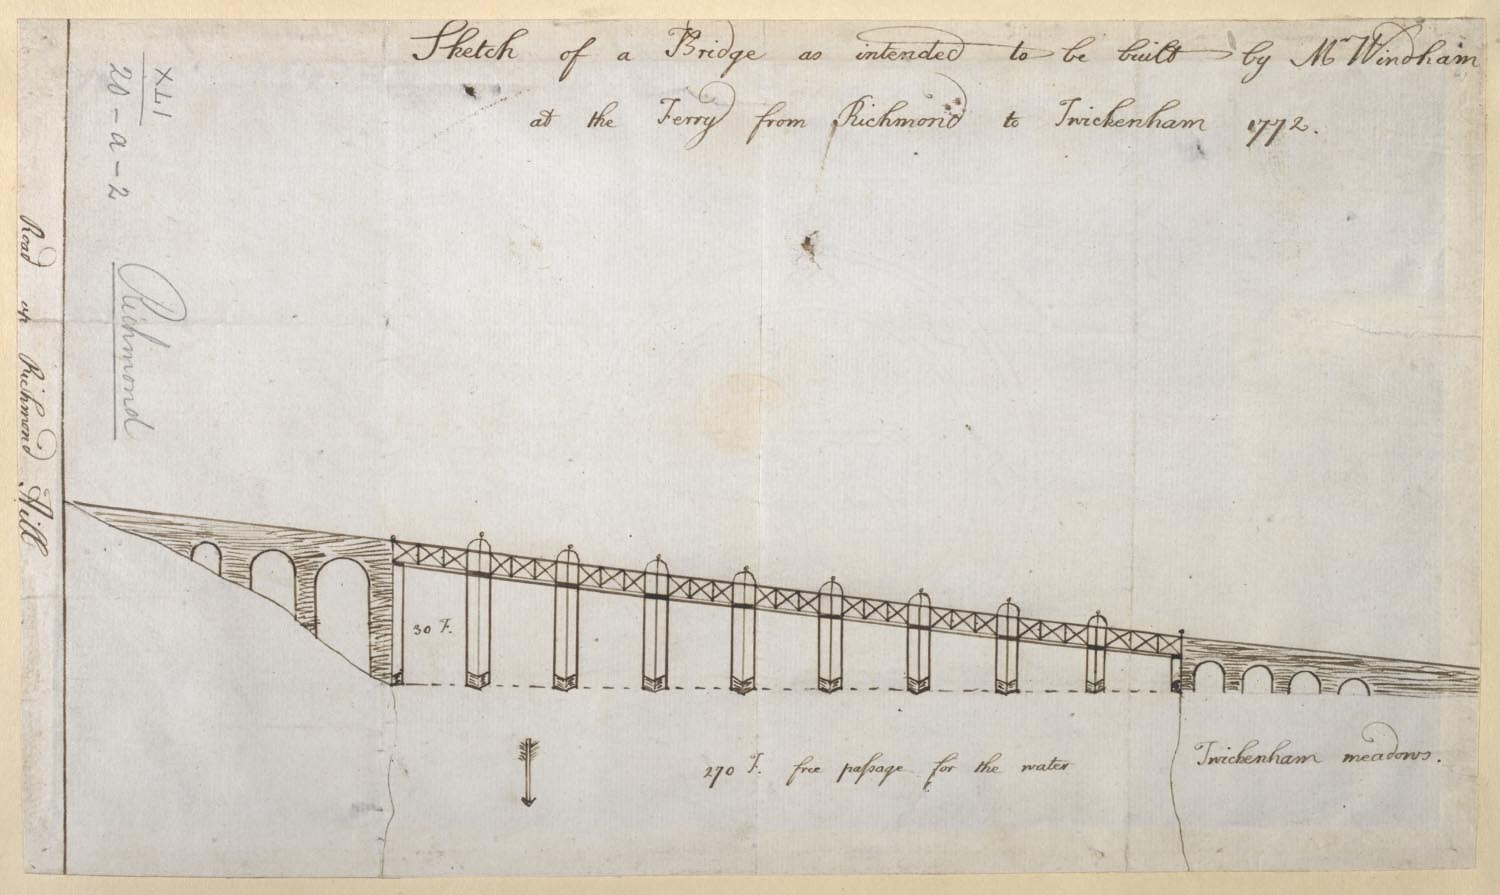 Sketch of a Bridge as intended to be built by Mr Windham
at the Ferry from Richmond to Twickenham 1772.
XLI
20-a-2
Richmond
Road up Richmond Hill
30 F.
270 F. free paſsage for the water
Twickenham meadows.